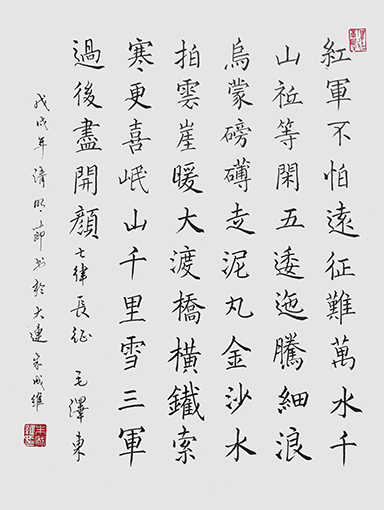 紅軍不怕遠征難萬水千
山祗等閑五逶迤騰細浪
烏蒙磅礴走泥丸金沙水
拍雲崖暖大渡橋橫鐵索
寒更喜岷山千里雪三軍
過後盡開顏 七律長征 毛澤東
戊戌年清明節书於大連家成維